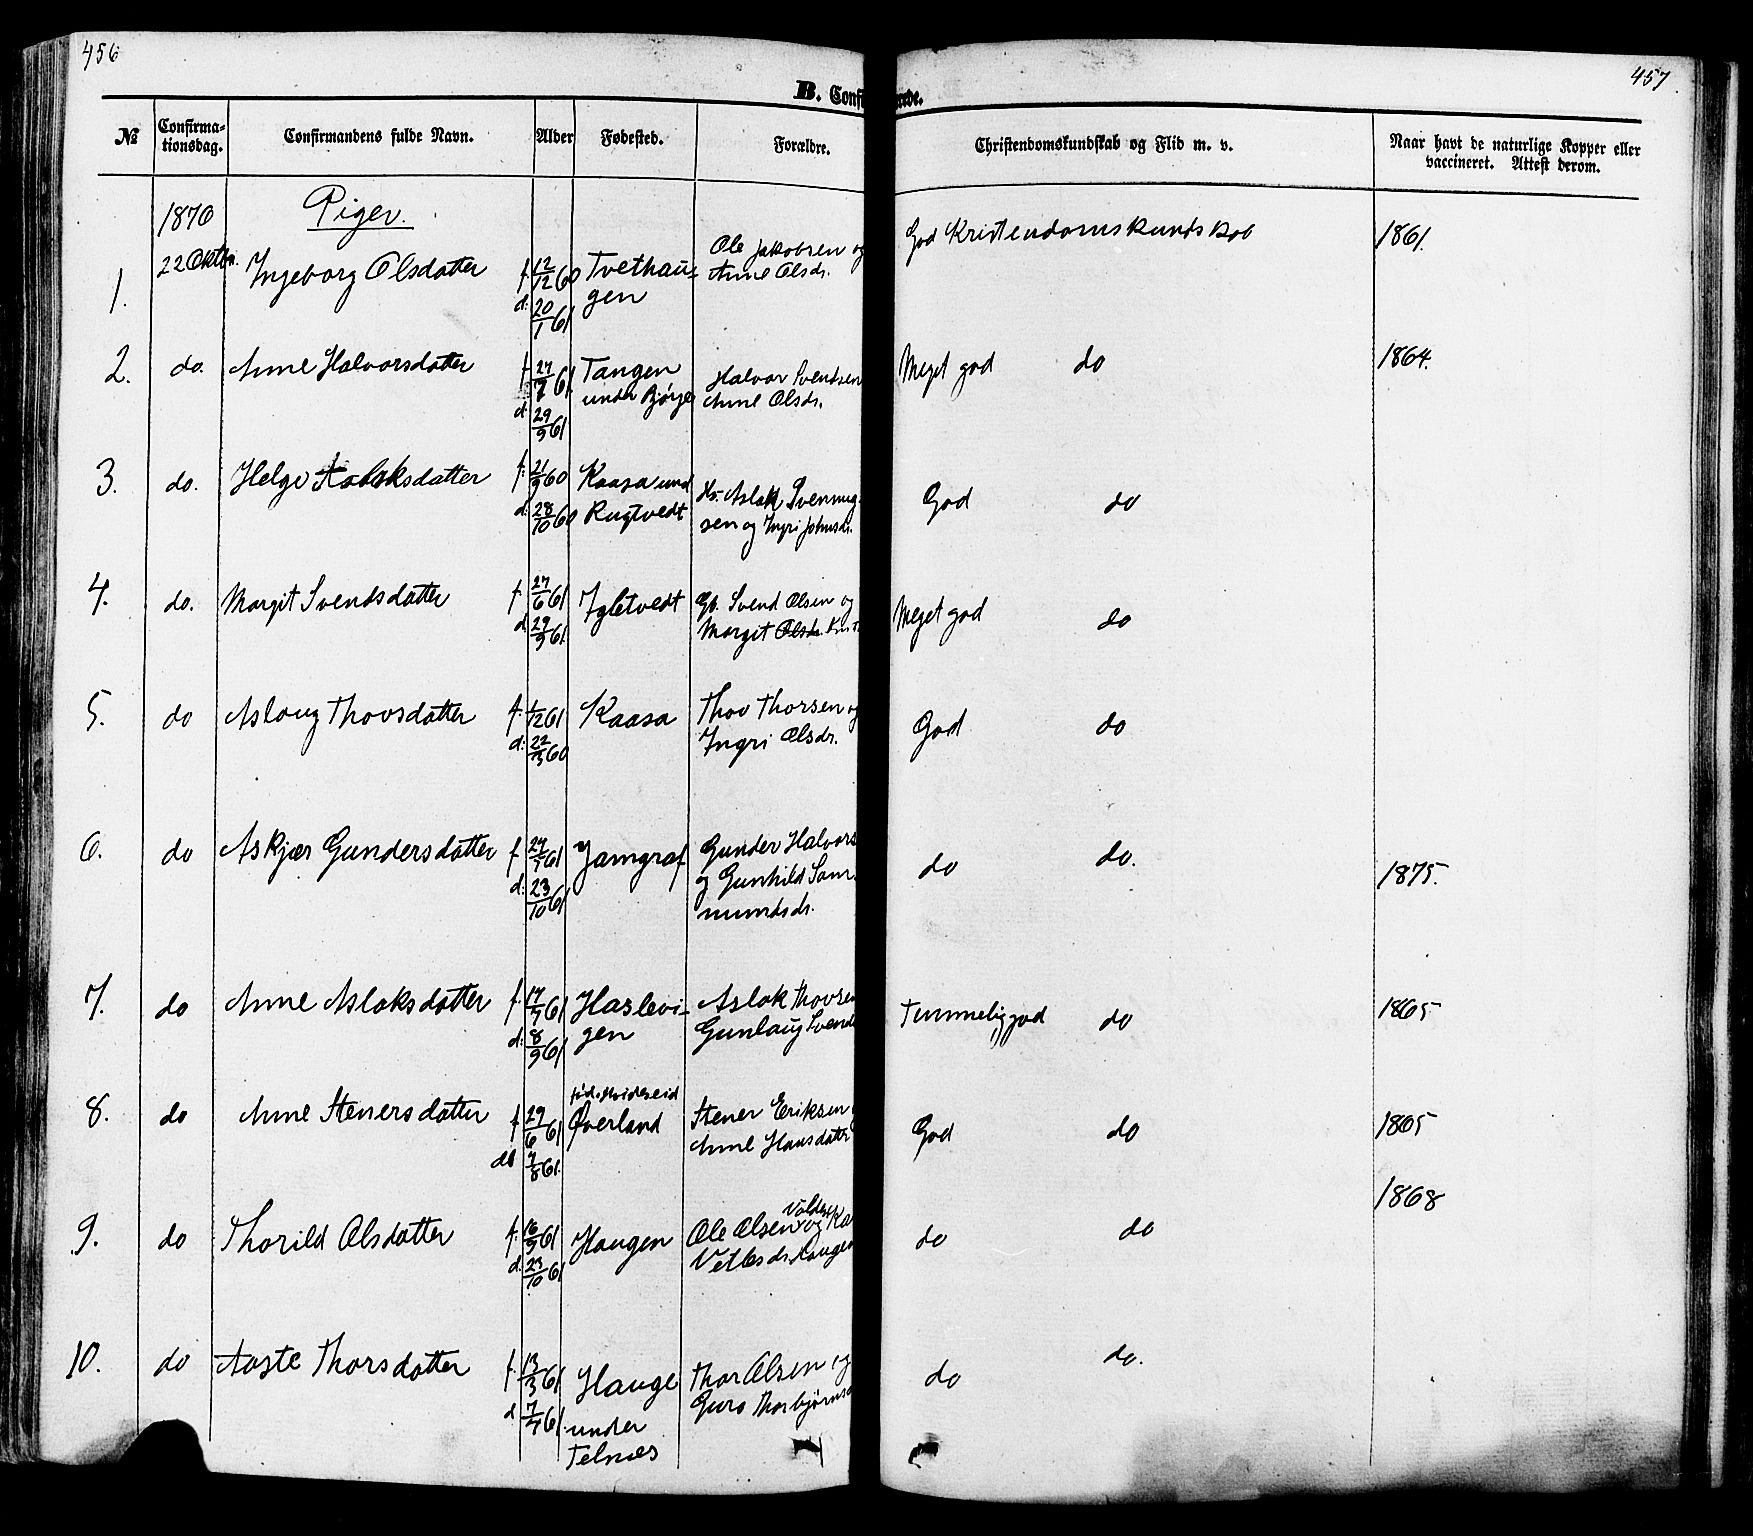 456
457
B. Conf mede.
№
Confirma-
tionsdag.
Confirmandens fulde Navn.
Alder
Fødested.
Forældre.
Christendomskundskab og Flid m. v.
Naar havt de naturlige Kopper eller
vaccineret. Attest derom.
1876
Piger.
1.
22 Oktbr.
Ingeborg Olsdatter
f. 12/12 60
d: 20/1 61
Tvethau-
gen
Ole Jakobsen og
Anne Olsdr.
God Kristendomskundskab
1861.
2.
do.
Anne Halvorsdatter
f. 27/7 61
d. 29/9 61
Tangen
under Bjørge
Halvor Svendsen
Anne Olsdr.
Meget god do
1864.
3.
do.
Helge Aslaksdatter
f. 21/9 60
d. 28/10 60
Kaasa und
Rugtvedt
Aslak Svennug-
sen og Ingri Johnsdr.
God do
4.
do.
Margit Svendsdatter
f. 27/6 61
d. 29/9 61
Igletvedt
Gb. Svend Olsen og
Margit Olsdr.
Meget god do
5.
do
Aslaug Thovsdatter
f. 1/12 61
d: 22/3 60
Kaasa
Thov Thorsen og
Ingri Olsdr.
God do
6.
do
Askjær Gundersdatter
f. 24/7 61
d: 23/10 61
Jamgraf
Gunder Halvors
og Gunhild Sam-
mundsdr.
do do.
1875.
7.
do
Anne Aslaksdatter
f. 17/7 61
d: 8/9 61
Haslevi-
gen
Aslak Thovsen
Gunlaug Svends
Temmelig god do
1865
8.
do
Anne Stenersdatter
f 29/6 61
db 4/8 61.
fød i Hvideseid
Øverland
Stener Eriksen
Anne Hansdatr
God do
1865
9.
do
Thorild Olsdatter
f. 16/9 61
d. 23/10 61
Haugen
Ole Olsen og Ka
Vetlesdr. Haugen
do do
1868
10.
do
Aaste Thorsdatter
f. 13/3 61
d 7/4 61.
Hauge
under
Telnæs
Thor Olsen og
Guro Thorbjørnsd
do do.